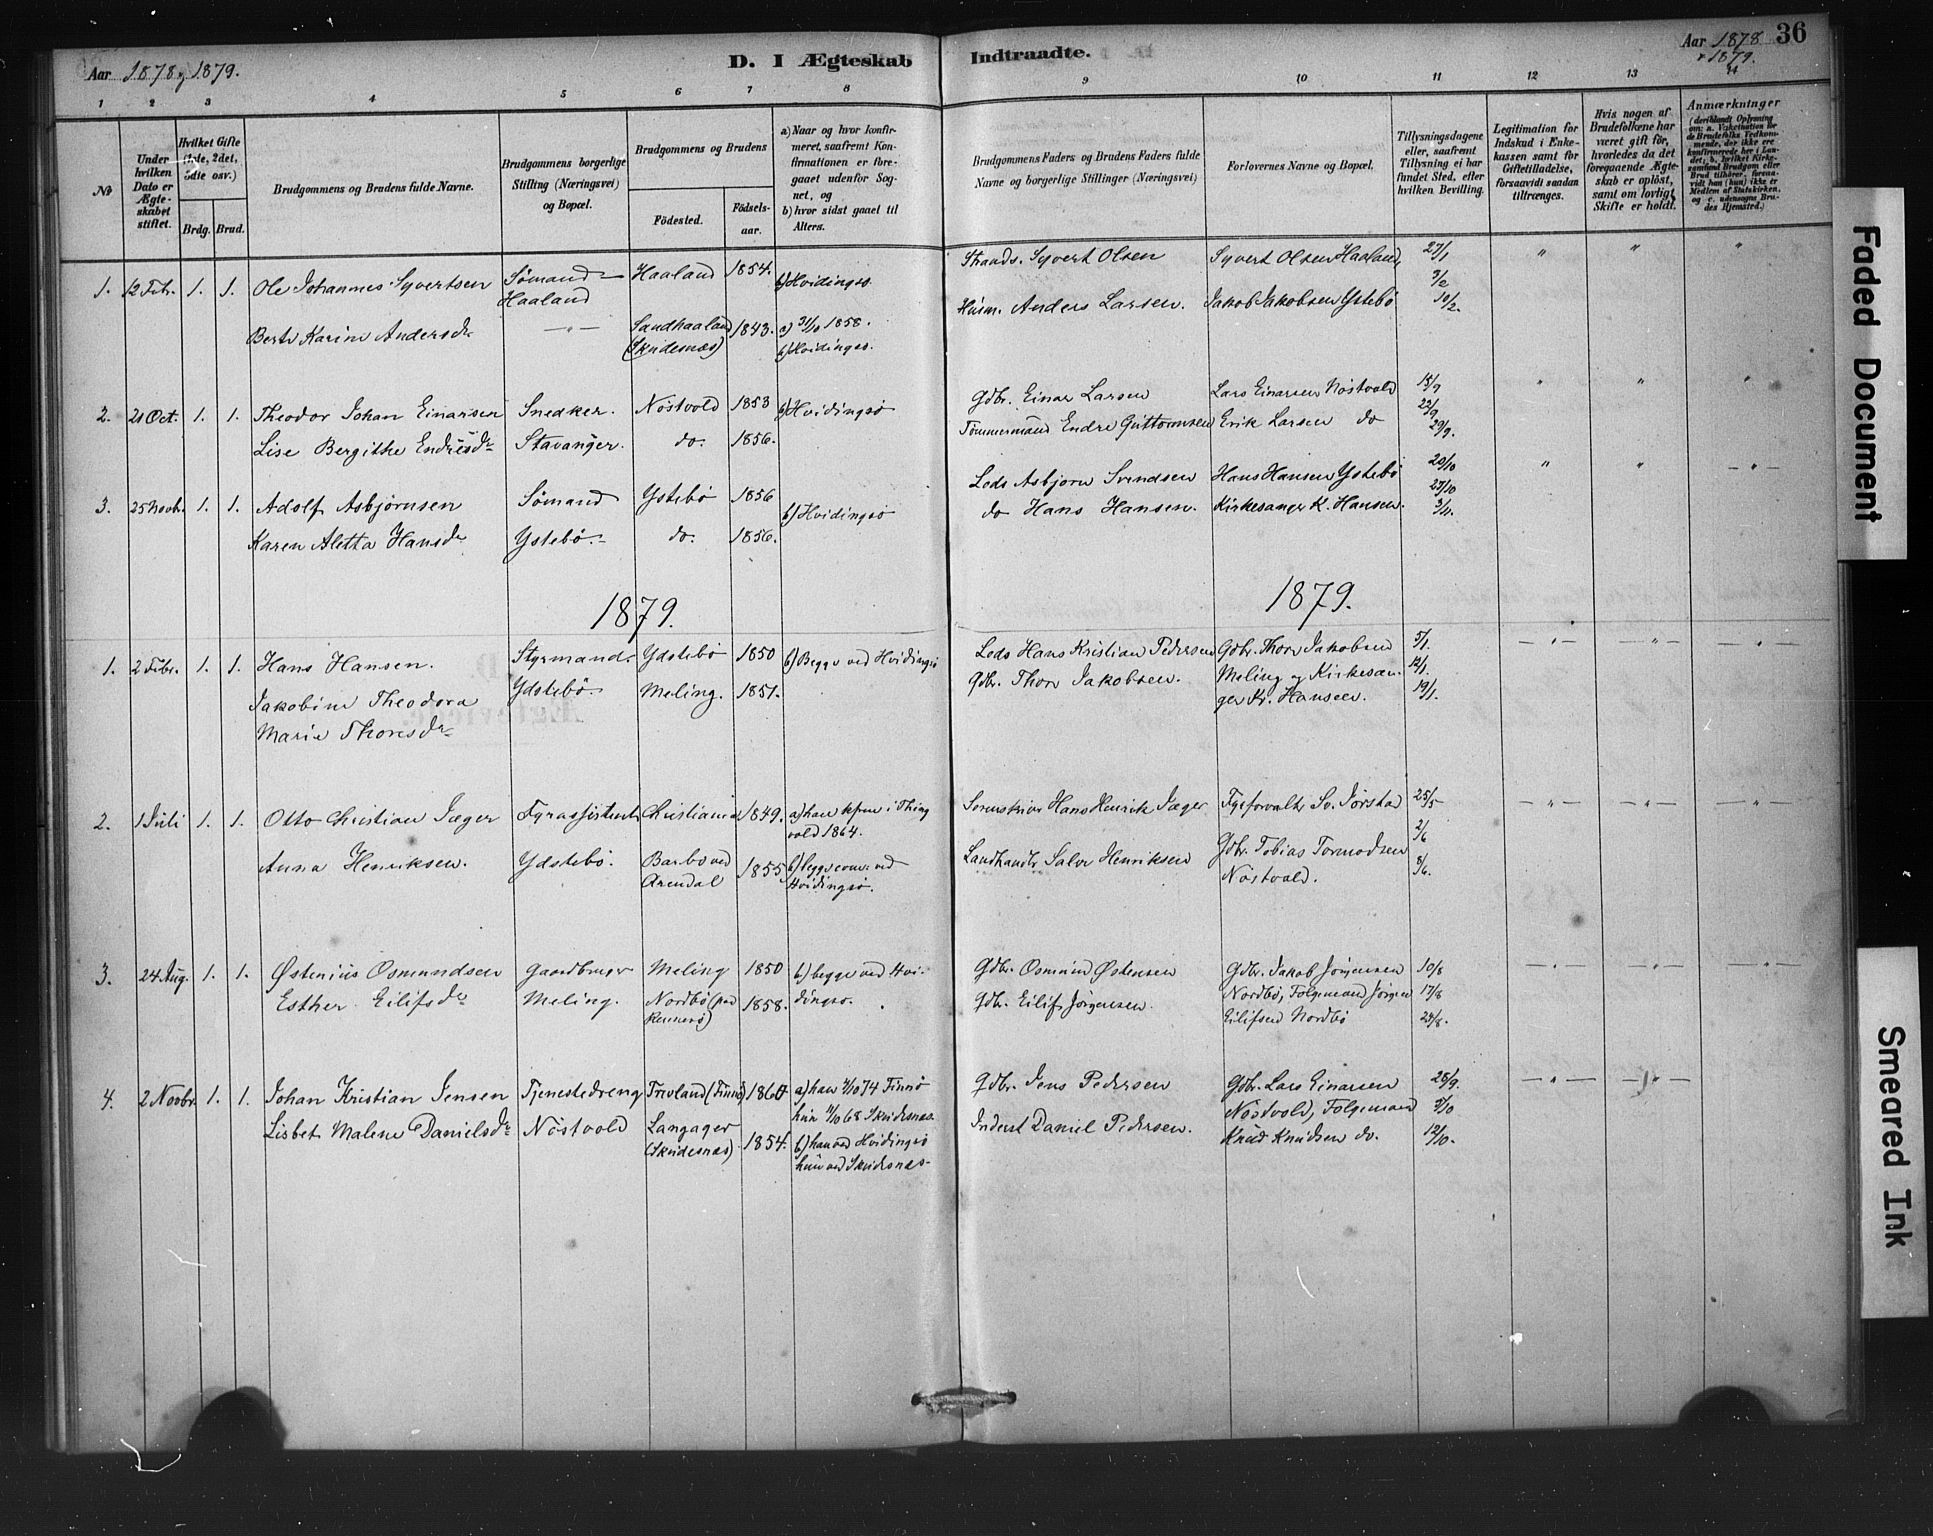 Aar 1878 & 1879.
D. I Ægteskab
Indtraadte.
Aar 1878 & 1879.
36
1 2 3 4 5 6 7 8
9 10 11 12 13 14
No
Under hvilken Dato er Ægteskabet stiftet.
Hvilket Gifte (1ste, 2det, 3die osv.)
Brdg. Brud.
Brudgommens og Brudens fulde Navne.
Brudgommens borgerlige Stilling (Næringsvei) og Bopæl.
Brudgommens og Brudens
Födested.
Födselsaar.
a) Naar og hvor konfirmeret, saafremt Konfirmationen er foregaaet udenfor Sognet, og
b) hvor sidst gaaet til Alters.
Brudgommens Faders og Brudens Faders fulde Navne og borgerlige Stillinger (Næringsvei)
Forlovernes Navne og Bopæl.
Tillysningsdagene eller, saafremt Tillysning ei har fundet Sted, efter hvilken Bevilling.
Legitimation for Indskud i Enkekassen samt for Giftetilladelse, forsaavidt saadan tiltrænges.
Hvis nogen af Brudefolkene har været gift för, hvorledes da det foregaaende Ægteskab er oplöst, samt om lovligt Skifte er holdt.
Anmærkninger
(deriblandt Oplysning om: a. Vakcination for de Brudefolks Vedkommende, der ikke ere konfirmerede her i Landet; b. hvilket Kirkesamfund Brudgom eller Brud tilhörer, forsaavidt han (hun) ikke er Medlem af Statskirken, og c. udensogns Brudes Hjemsted.)
1. 12 Febr. 1. 1. Ole Johannes Syvertsen Sømand Haaland Haaland 1854. b) Hvidingsø Strands. Syvert Olsen Syvert Olsen Haaland, 27/1 " " "
Berte Karine Andersdr — " — Sandhaaland (Skudesnæs) 1843. a) 31/10 1858. b) Hvidingsø. Husm. Anders Larsen. Jakob Jakobsen Ystebø 3/2 10/2.
2. 21 Oct. 1. 1. Theodor Johan Einarsen Snedker. Nöstvold 1853 b) Hvidingsø Gdbr. Einar Larsen Lars Einarsen Nöstvold 15/9 " " "
Lise Bergithe Endresdr Stavanger. do. 1856. Tømmermand Endre Guttormsen Erik Larsen do 22/9 29/9.
3. 25 Novbr. 1. 1. Adolf Asbjørnsen Sömand Ystebö 1856 b) Hvidingsø Lods Asbjørn Svendsen Hans Hansen Ystebö 20/10 " " — " —
Karen Aletta Hansdr Ystebö. do. 1856. do Hans Hansen. Kirkesanger K. Hansen. 27/10 3/11.
1879.
1879.
1. 2 Febr. 1. 1. Hans Hansen. Styrmand. Ydstebö 1850 b) Begge ved Hvidingsø Lods Hans Kristian Pedersen Gdbr. Thore Jakobsen 5/1. — " — — " — — " —
Jakobine Theodora Ydstebö Meling. 1851. Gdbr. Thore Jakobsen. Meling og Kirkesan- 12/1.
Marie Thoresdr ger Kr. Hansen. 19/1.
2. 1 Juli 1. 1. Otto Christian Jæger Fyrassistent Christiania 1849. a) han kfm i Thingvold 1864. Sorenskriver Hans Henrik Jæger Fyrforvalter Sv. Jørstad 25/5 — " — — " — — " —
Anna Henriksen. Ydstebö. Barbo ved Arendal 1855 b) begge ved Hvidingsø. Landhandler Salve Henriksen Gdbr. Tobias Tormodsen Nöstvold. 2/6 8/6.
3. 24 Aug. 1. 1. Østenius Osmundsen Gaardbruger Meling 1850 b) begge ved Hvi- Gdbr. Osmund Østensen Gdbr. Jakob Jörgensen 10/8 — " — — " — — " —
Esther Eilifsdr Meling. Nordbö (paa Rennesö) 1858. dingsø. Gdbr. Eilif Jörgensen. Nordbö, Folgemand Jörgen 17/8
Eilifsen Nordbö 24/8.
4. 2 Novbr. 1. 1. Johan Kristian Jensen Tjenestedreng (Finnö) 1860 a) han 4/10 74 Finnö Gdbr. Jens Pedersen Gdbr. Lars Einarsen 28/9. — " — — " —
Lisbet Malene Danielsdr Nöstvold Langager (Skudesnæs) 1854. hun 4/10 68 Skudesnæs. Inderst Daniel Pedersen. Nöstvold, Folgemand 5/10
b) han ved Hvidingsø Knud Knudsen do. 12/10.
hun ved Skudesnæs.
Faded Document
Smeared Ink